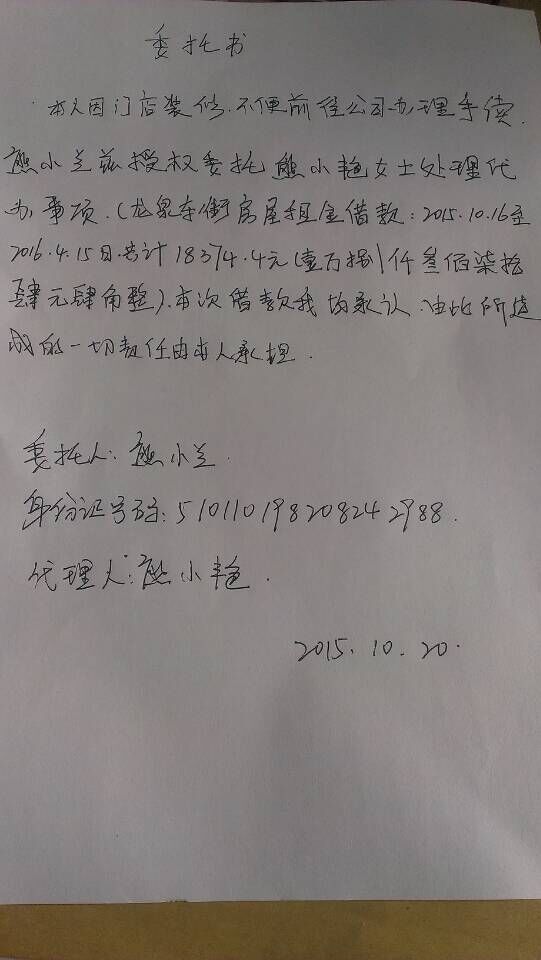 委托书
本人因门店装修.不便前往公司办理手续.
熊小兰兹授权委托熊小艳女士处理代
办事项.(龙泉东街房屋租金借款:2015.10.16至
2016.4.15日.共计18374.4元(壹万捌仟叁佰柒拾
肆元肆角整).本次借款我均承认.由此所造
成的一切责任由本人承担.
委托人:熊小兰.
身份证号码:510110198208242988.
代理人:熊小艳.
2015.10.20.